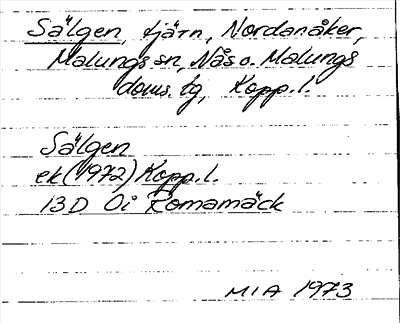 Sälgen, tjärn, Nordanåker,
Malungs sn, Nås o. Malungs
doms. tg, Kopp. l.
Sälgen
ek (1972) Kopp. l.
13D 0i Romamäck
MIA 1973